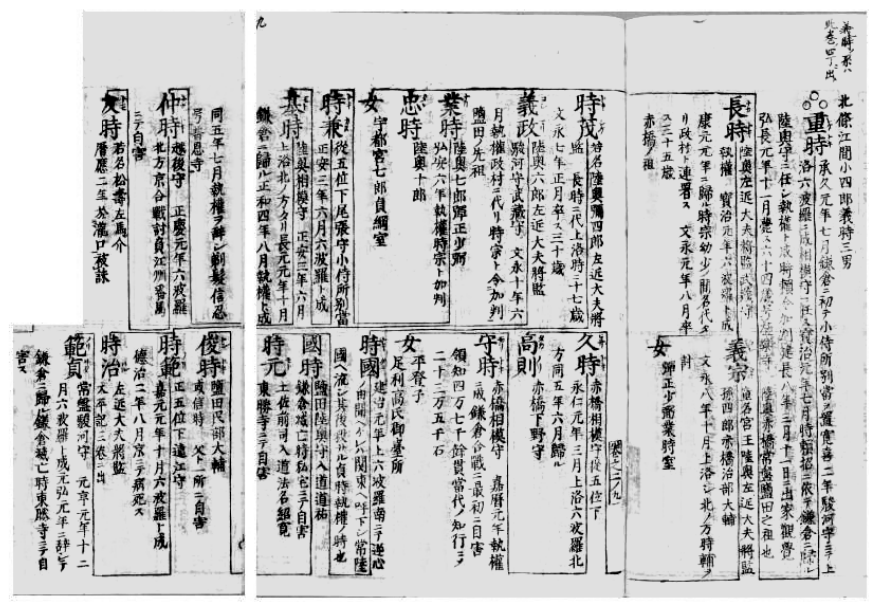 義時ノ系ハ
此巻四丁出
北條江間小四郎義時三男
重時
承久元年七月鎌倉ニ初テ小侍所別當ニ置寛喜二年駿河守ニテ上
洛六波羅ニ成相模守ニ任ス寶治元年七月時頼招ニ依テ鎌倉ニ歸ル
陸奥守ニ任シ執権ト成時頼ト加判建長八年三月十一日出家觀覺
弘長元年十一月薨ス六十四歳号極楽寺 陸奥赤橋常盤鹽田之祖也
長時
陸奥左近大夫将監武蔵守
執權 寶治元年六波羅ト成
康元元年ニ歸ル時宗幼少ノ間名代タ
リ政村ト連署ス 文永元年八月卒
ス三十五歳
赤橋ノ祖
義宗
童名宮王陸奥左近大夫将監
孫四郎赤橋治部大輔
文永八年十月上洛シ北ノ方時輔ヲ
討
女
歸正少弼業時室
時茂
童名陸奥彌四郎左近大夫將
監 長時ニ代上洛時ニ十七歳
文永七年正月卒ス三十歳
義政
陸奥六郎左近大夫將監
駿河守武藏守 文永十年六
月執權政村ニ代リ時宗ト令加判
鹽田ノ先祖
業時
陸奥七郎彈正少弼
弘安六年執權時宗ト加判
忠時
陸奥十郎
女
宇都宮七郎貞綱室
時兼
從五位下尾張守小侍所別當
正安三年六月六波羅ト成
基時
陸奥相模守 正安三年六月
上洛北ノ方タリ長元元年十月
鎌倉ニ歸ル正和四年八月執權ト成
同五年七月執權ヲ辞シ剃髪信忍
号普恩寺
仲時
越後守 正慶元年六波羅
北方京合戰討負江州番馬
ニテ自害
友時
若名松壽左馬介
暦應二年於瀧口被誅
久時
赤橋相模守從五位下
永仁元年三月上洛六波羅北
方同五年六月歸ル
高則
赤橋下野守
守時
赤橋相模守 嘉暦元年執權
ニ成鎌倉合戰ニ最初ニ自害
領知四万七千餘貫當代ノ知行ニメ
二十三万五千石
女
平登子
足利高氏御臺所
時國
建治元年上六波羅南ニテ逆心
ノ由聞ヘケレバ関東ヘ呼下シ常陸
國ヘ流シ其後殺サル貞時執權ノ時也
國時
鹽田陸奥守入道道祐
鎌倉滅亡時私宅ニテ自害
時元
土佐前司入道法名紹覚
東勝寺ニテ自害
俊時
鹽田民部大輔
或信時 父ト一所ニ自害
時範
正五位下遠江守
嘉元元年十月六波羅ト成
德治二年八月京ニテ病死ス
時治
左近大夫將監
太平記三巻ニ出
範貞
常盤駿河守 元亨元年十二
月六波羅ト成元弘元年ニ辞シテ
鎌倉ニ歸ル鎌倉滅亡時東勝寺ニテ自
害ス
九
巻之二ノ九